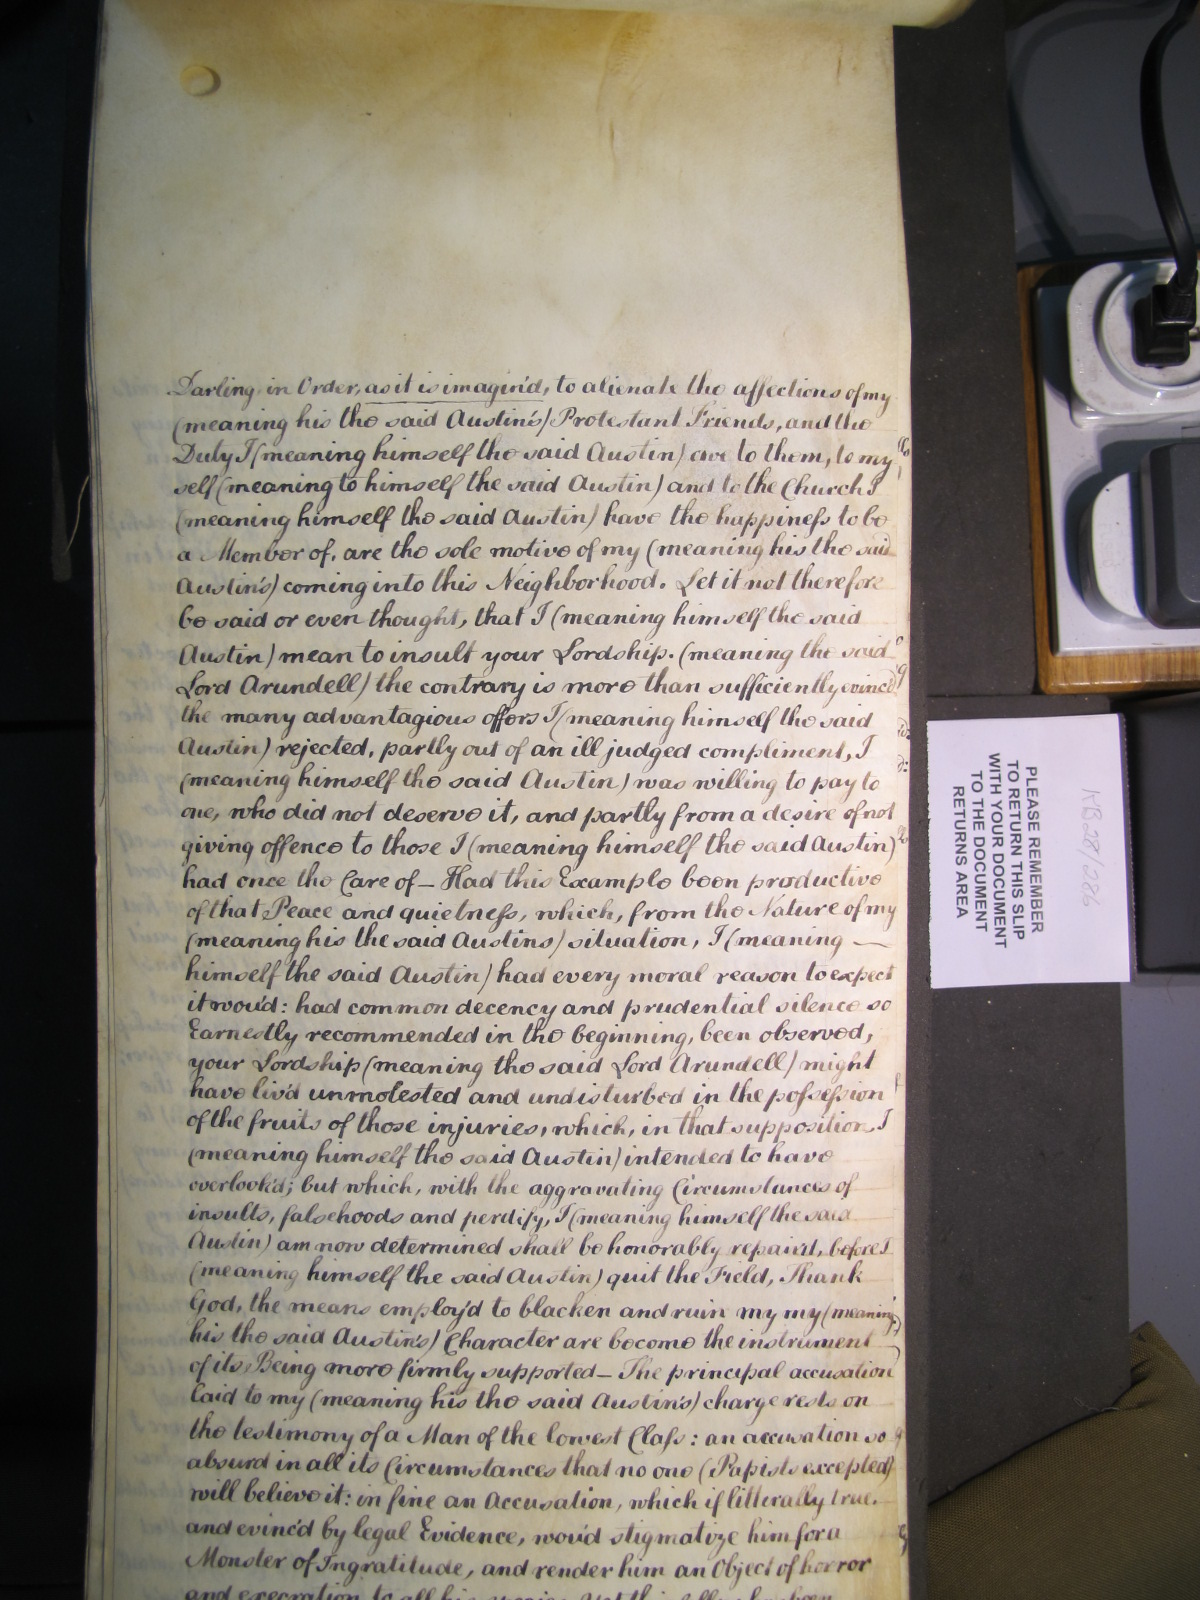 Darling in Order, as it is imagin'd, to alienate the affections of my
(meaning his the said Austin's) Protestant Friends, and the
Duty I (meaning himself the said Austin) owe to them, to my
self (meaning to himself the said Austin) and to the Church I
(meaning himself the said Austin) have the happiness to be
a Member of, are the sole motive of my (meaning his the said
Austin's) coming into this Neighborhood. Let it not therefore
be said or even thought, that I (meaning himself the said
Austin) mean to insult your Lordship. (meaning the said
Lord Arundell) the contrary is more than sufficiently evinc'd
the many advantagious offers I (meaning himself the said
Austin) rejected, partly out of an ill judged compliment, I
(meaning himself the said Austin) was willing to pay to
one, who did not deserve it, and partly from a desire of not
giving offence to those I (meaning himself the said Austin)
had once the Care of — Had this Example been productive
of that Peace and quietness, which, from the Nature of my
(meaning his the said Austins) situation, I (meaning —
himself the said Austin) had every moral reason to expect
it wou'd: had common decency and prudential silence so
Earnestly recommended in the beginning, been observed,
your Lordship (meaning the said Lord Arundell) might
have liv'd unmolested and undisturbed in the possession
of the fruits of those injuries, which, in that supposition, I
(meaning himself the said Austin) intended to have
overlook'd; but which, with the aggravating Circumstances of
insults, falsehoods and perdify, I (meaning himself the said
Austin) am now determined shall be honorably repair'd, before I
(meaning himself the said Austin) quit the Field, Thank
God, the means employ'd to blacken and ruin my my (meaning
his the said Austin's) Character are become the instrument
of its Being more firmly supported — The principal accusation
laid to my (meaning his the said Austin's) charge rests on
the testimony of a Man of the lowest Class: an accusation so
absurd in all its Circumstances that no one (Papists excepted)
will believe it: in fine an Accusation, which if litterally true.
and evinc'd by legal Evidence, wou'd stigmatize him for a
Monster of Ingratitude, and render him an Object of horror
and execration to all his species
PLEASE REMEMBER
TO RETURN THIS SLIP
WITH YOUR DOCUMENT
TO THE DOCUMENT
RETURNS AREA
KB28/286